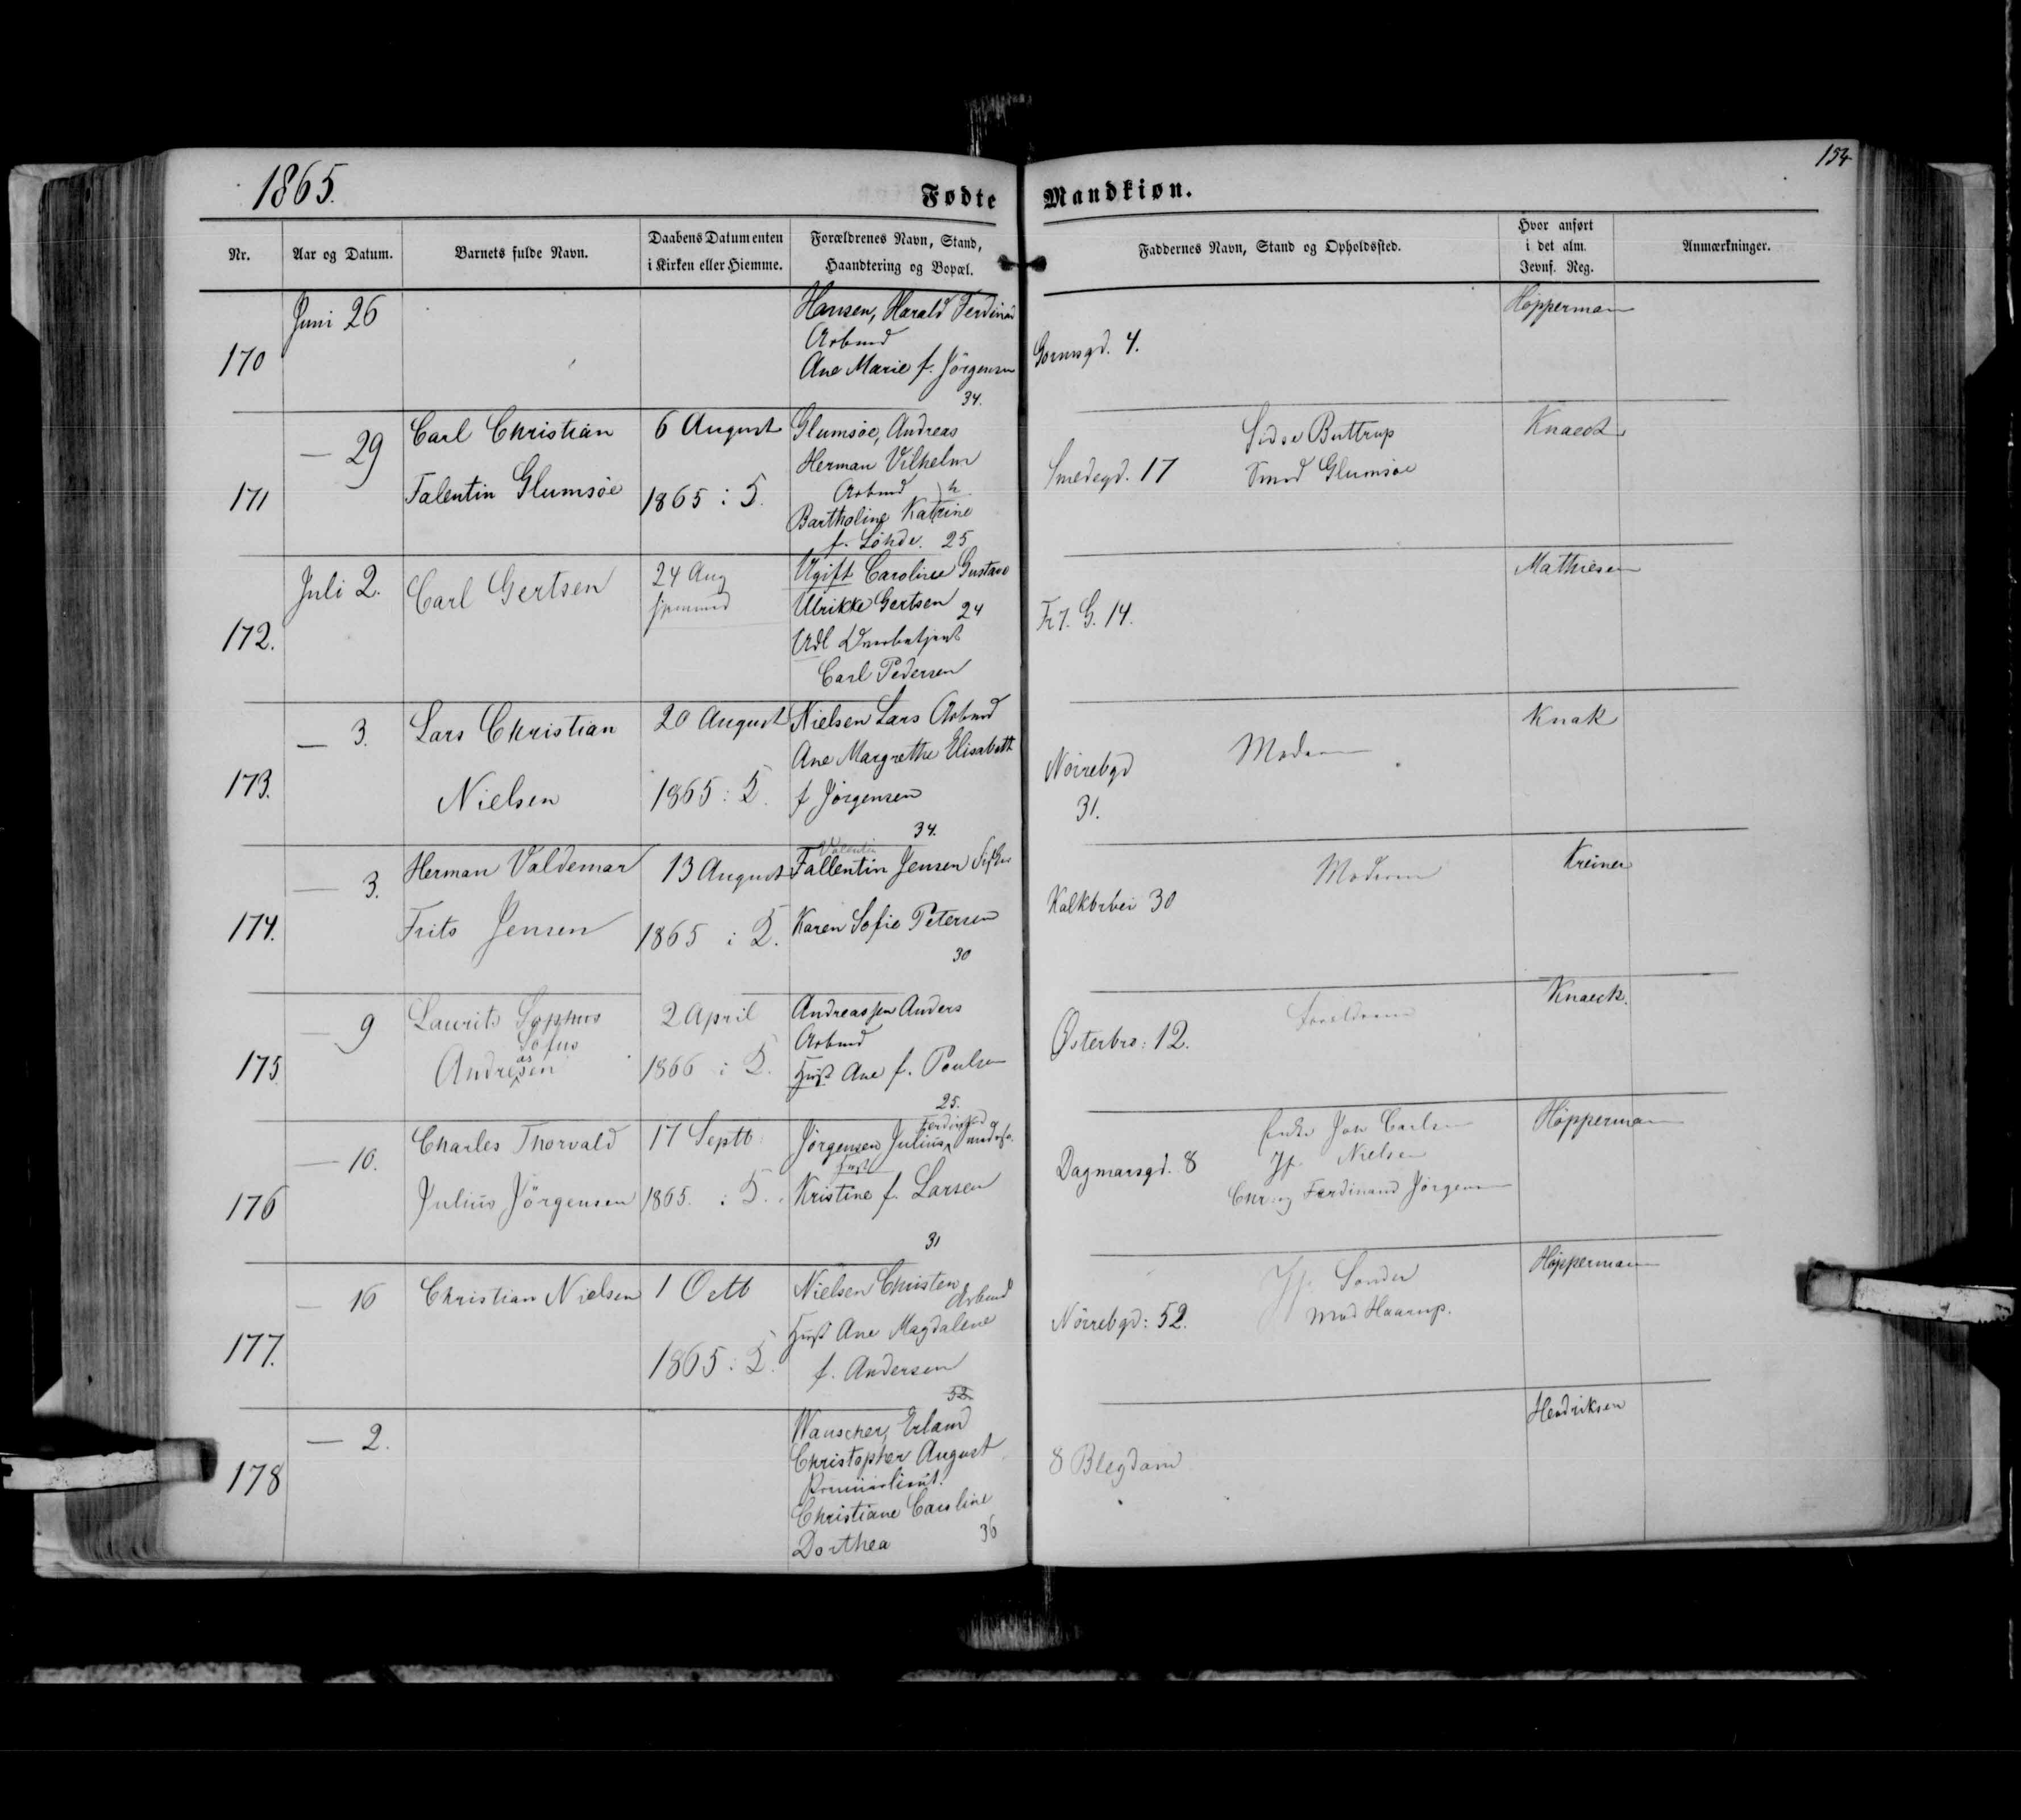 1865.
154
Fødte Mandkiøn.
Nr.
Aar og Datum.
Barnets fulde Navn.
Daabens Datum enten
i Kirken eller Hiemme.
Forældrenes Navn, Stand,
Haandtering og Bopæl.
Faddernes Navn, Stand og Opholdssted.
Hvor anført
i det alm.
Jevnf. Reg.
Anmærkninger.
170
Juni 26
Hansen, Harald Ferdinand
Arbmd
Ane Marie f. Jörgensen
34.
Gormsgd. 4.
Høpperman
171
— 29
Carl Christian
Falentin Glumsöe
6 August
1865 : 5.
Glumsöe, Andreas
Herman Vilhelm
Arbmd
Bartholine Katrine
f. Löhde. 25
Smedegd. 17
Sidse Buttrup
Smed Glumsöe
Knaeck
172.
Juli 2.
Carl Gertsen
24 Aug
Ugift Caroline Gustave
Ulrikke Gertsen 24
Udl
Carl Pedersen
Fr 7. G. 14.
Mathiesen
173.
— 3.
Lars Christian
Nielsen
20 August
1865 : 5.
Nielsen Lars Arbmd
Ane Margrethe Elisabeth
f Jörgensen
34.
Nörrebgd
31.
Moderen
Knak
174.
— 3.
Herman Valdemar
Frits Jensen
13 August
1865 : 5.
Valentin
Fallentin Jensen
Karen Sofie Petersen
30
Kalkbrvei 30
Moderen
Kreiner
175.
— 9
Laurits Sophus
Sofus
as
Andresen
2 April
1866 : 5.
Andreassen Anders
Arbmd
Hust Ane f. Poulsen
25.
Østerbro: 12.
Forældrene
Knaeck.
176
— 10.
Charles Thorvald
Julius Jörgensen
17 Septb
1865. : 5.
Ferdinand
Jörgensen Julius
Hust
Kristine f. Larsen
31
Dagmarsgd. 8
Joh Carlsen
Jfr Nielsen
Chr. og Ferdinand Jörgensen
Høpperman
177.
— 16
Christian Nielsen
1 Octb
1865 : 5.
Nielsen Christen
Arbmd
Hust Ane Magdalene
f. Andersen
52
Nörrebgd: 52.
Jfr Sonder
Mad Haarup.
Høpperman
178
— 2.
Wauscher, Erland
Christopher August
Premierlieut.
Christiane Caroline
Dorthea 36
8 Blegdam
Hendriksen